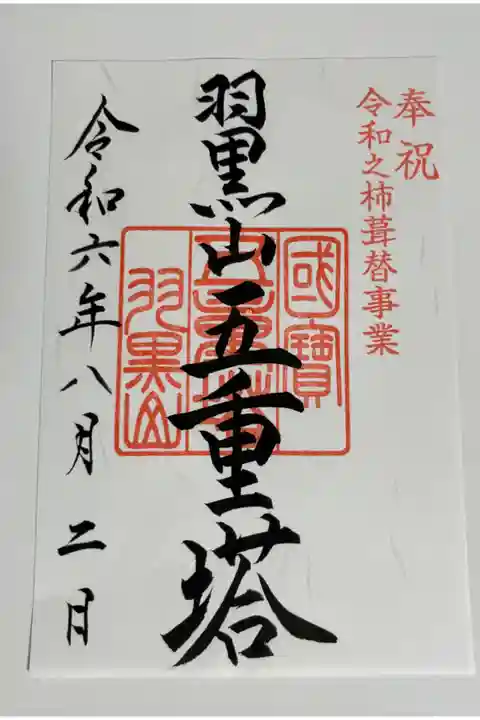 奉祝
令和之杮葺替事業
羽黒山五重塔
國寶
五重塔
羽黒山
令和六年八月二日